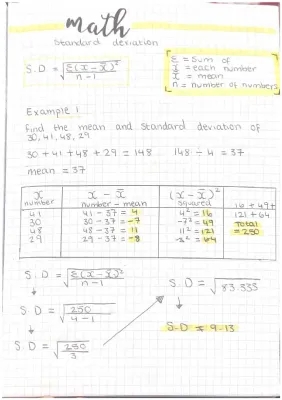 math
standard deviation
S.D = √Σ(x - x̄)²
n - 1
Σ = sum of
x = each number
x̄ = mean
n = number of numbers
Example 1
Find the mean and standard deviation of
30, 41, 48, 29
30 + 41 + 48 + 29 = 148   148 ÷ 4 = 37
mean = 37
x   x - x̄   (x - x̄)²
number   number - mean   squared   16 + 49 +
41   41 - 37 = 4   4² = 16   121 + 64
30   30 - 37 = -7   -7² = 49   Total
48   48 - 37 = 11   11² = 121   = 250
29   29 - 37 = -8   -8² = 64
S.D = √Σ(x - x̄)²
n - 1
S.D = √250
4 - 1
S.D = √250
3
S.D = √83.333
S.D = 9.13